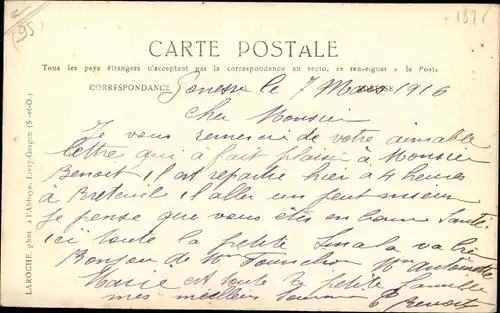 95
1821
CARTE POSTALE
Tous les pays étrangers n'acceptant pas la correspondance au recto, se renseigner à la Poste
CORRESPONDANCE
Gonesse le 7 Mars 1916
Cher Monsieur
Je vous remerci de votre aimable
lettre qui a fait plaisir à Monsieur
Benoit il est repartie hier a 4 heures
à Breteuil il aller un peut mieux
je pense que vous etes en bonne Santé
ici toute la petite va bien
Bonjour de Mme Mme Antoinette
Marie et toute la petite famille
mes meilleurs
Benoit
LAROCHE, phot. à l'Abbaye, Livry-Gargan (S.-et-O.)